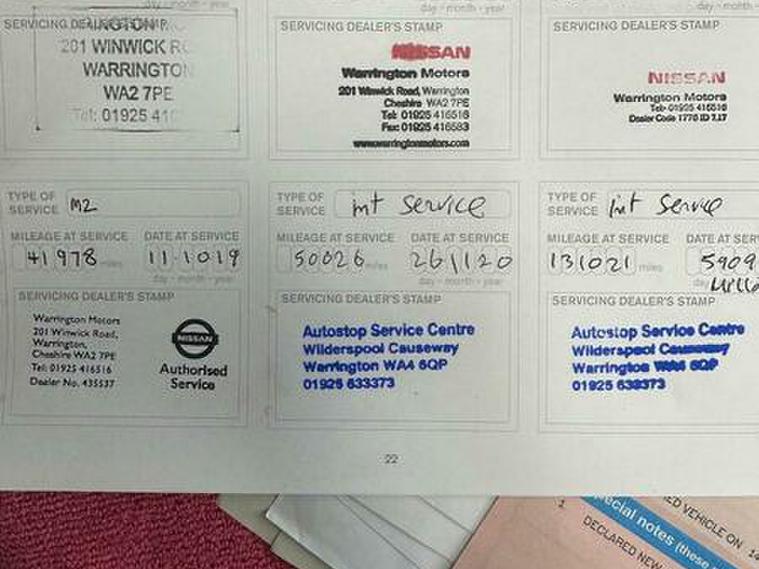 day - month - year
day - month - year
SERVICING DEALER'S STAMP
201 WINWICK
WARRINGTON
WA2 7PE
Tel: 01925 41
SERVICING DEALER'S STAMP
NISSAN
Warrington Motors
201 Winwick Road, Warrington
Cheshire WA2 7PE
Tel: 01925 416516
Fax: 01925 416583
www.warringtonmotors.com
SERVICING DEALER'S STAMP
NISSAN
Warrington Motors
Tel: 01925 416516
Dealer Code 1776 ID 7.17
TYPE OF SERVICE M2
MILEAGE AT SERVICE DATE AT SERVICE
41978 miles 11.10.19
day - month - year
SERVICING DEALER'S STAMP
Warrington Motors
201 Winwick Road,
Warrington,
Cheshire WA2 7PE
Tel: 01925 416516
Dealer No. 435537
NISSAN
Authorised
Service
TYPE OF SERVICE int service
MILEAGE AT SERVICE DATE AT SERVICE
50026 miles 261120
day - month - year
SERVICING DEALER'S STAMP
Autostop Service Centre
Wilderspool Causeway
Warrington WA4 6QP
01925 633373
TYPE OF SERVICE Int Service
MILEAGE AT SERVICE DATE AT SERV
131021 miles 5909
day - mon
SERVICING DEALER'S STAMP
Autostop Service Centre
Wilderspool Causeway
Warrington WA4 6QP
01925 633373
22
ED VEHICLE ON 14
pecial notes (these
1 DECLARED NEW